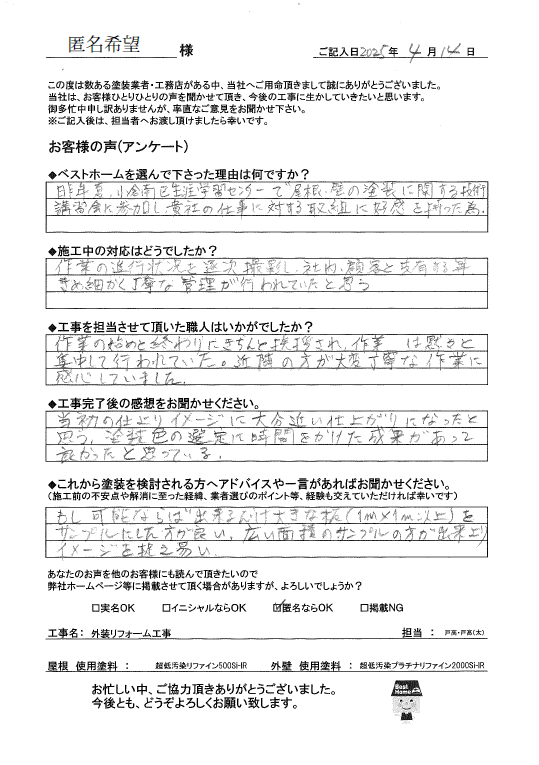 匿名希望 様
ご記入日 2025年 4月 14日
この度は数ある塗装業者・工務店がある中、当社へご用命頂きまして誠にありがとうございました。
当社は、お客様ひとりひとりの声を聞かせて頂き、今後の工事に生かしていきたいと思います。
御多忙中申し訳ありませんが、率直なご意見をお聞かせ下さい。
※ご記入後は、担当者へお渡し頂けましたら幸いです。
お客様の声(アンケート)
◆ベストホームを選んで下さった理由は何ですか?
昨年夏、小倉南区生涯学習センターで屋根、壁の塗装に関する技術
講習会に参加し、貴社の仕事に対する取組に好感を持った為。
◆施工中の対応はどうでしたか?
作業の進行状況を逐次撮影し、社内、顧客と共有する等
きめ細かく丁寧な管理が行われていたと思う
◆工事を担当させて頂いた職人はいかがでしたか?
作業の始めと終わりにきちんと挨拶され、作業は黙々と
集中して行われていた。近隣の方が大変丁寧な作業に
感心していました。
◆工事完了後の感想をお聞かせください。
当初の仕上りイメージに大分近い仕上がりになったと
思う。塗装色の選定に時間をかけた成果があって
良かったと思っている。
◆これから塗装を検討される方へアドバイスや一言があればお聞かせください。
(施工前の不安点や解消に至った経緯、業者選びのポイント等、経験も交えていただければ幸いです)
もし可能ならば出来るだけ大きな板(1m×1m以上)を
サンプルにした方が良い。広い面積のサンプルの方が出来上り
イメージを捉え易い。
あなたのお声を他のお客様にも読んで頂きたいので
弊社ホームページ等に掲載させて頂く場合がありますが、よろしいでしょうか?
□実名OK □イニシャルならOK ☑匿名ならOK □掲載NG
工事名: 外装リフォーム工事 担当 : 戸高・戸髙(太)
屋根 使用塗料 : 超低汚染リファイン500Si-IR 外壁 使用塗料 : 超低汚染プラチナリファイン2000Si-IR
お忙しい中、ご協力頂きありがとうございました。
今後とも、どうぞよろしくお願い致します。
Best Home